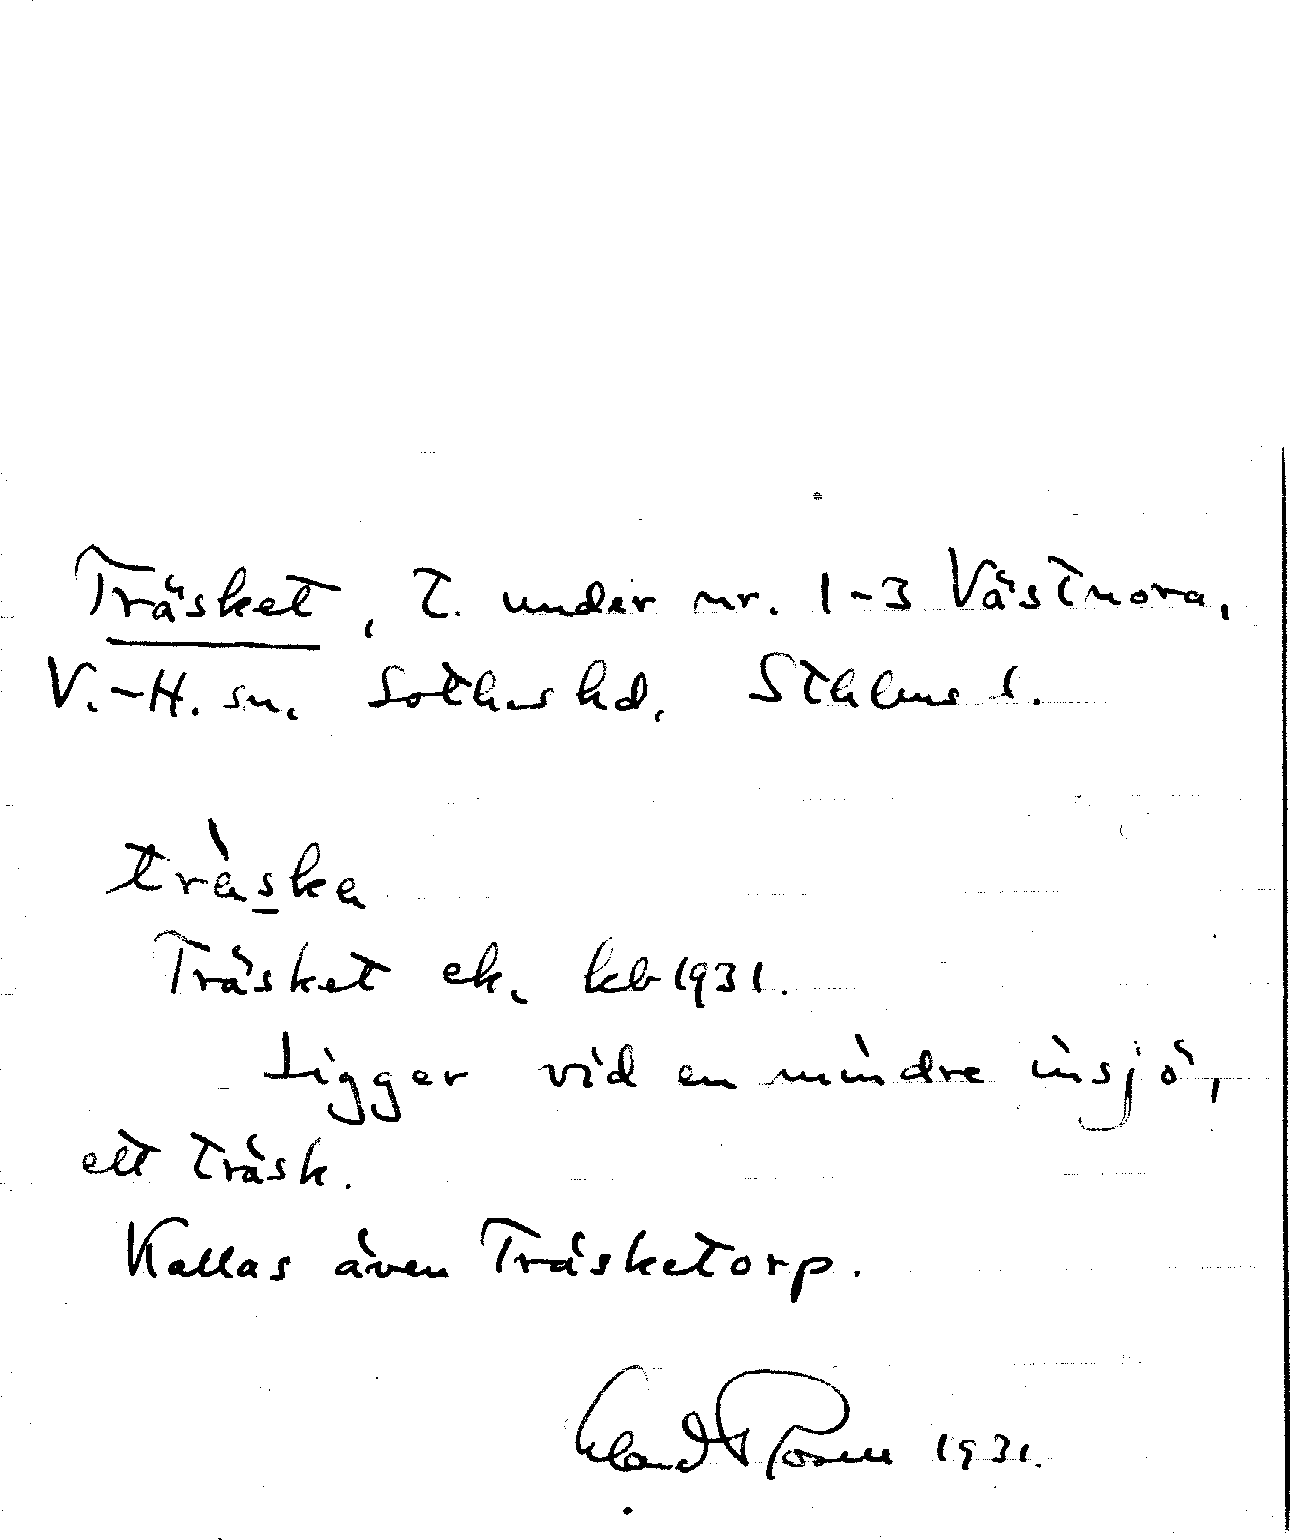 Träsket, t. under nr. 1-3 Västnora,
V.-H. sn. Sothms hd. Sthlms l.
tràska
Träsket ek. kb 1931.
Ligger vid en mindre insjö,
ett träsk.
Kallas även Träsketorp.
Erland Rosell 1931.